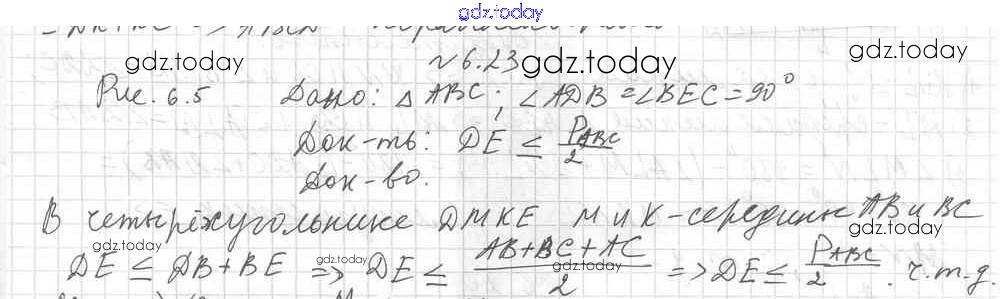 gdz.today
№ 6.23
gdz.today gdz.today gdz.today
Рис. 6.5 Дано: △ ABC; ∠ADB = ∠BEC = 90°
Док-ть: DE ≤ P_ABC/2
Док-во.
В четырёхугольнике DMKE M и K - середины AB и BC
gdz.today gdz.today gdz.today
DE ≤ DB + BE => DE ≤ (AB + BC + AC)/2 => DE ≤ P_ABC/2. ч.т.д.